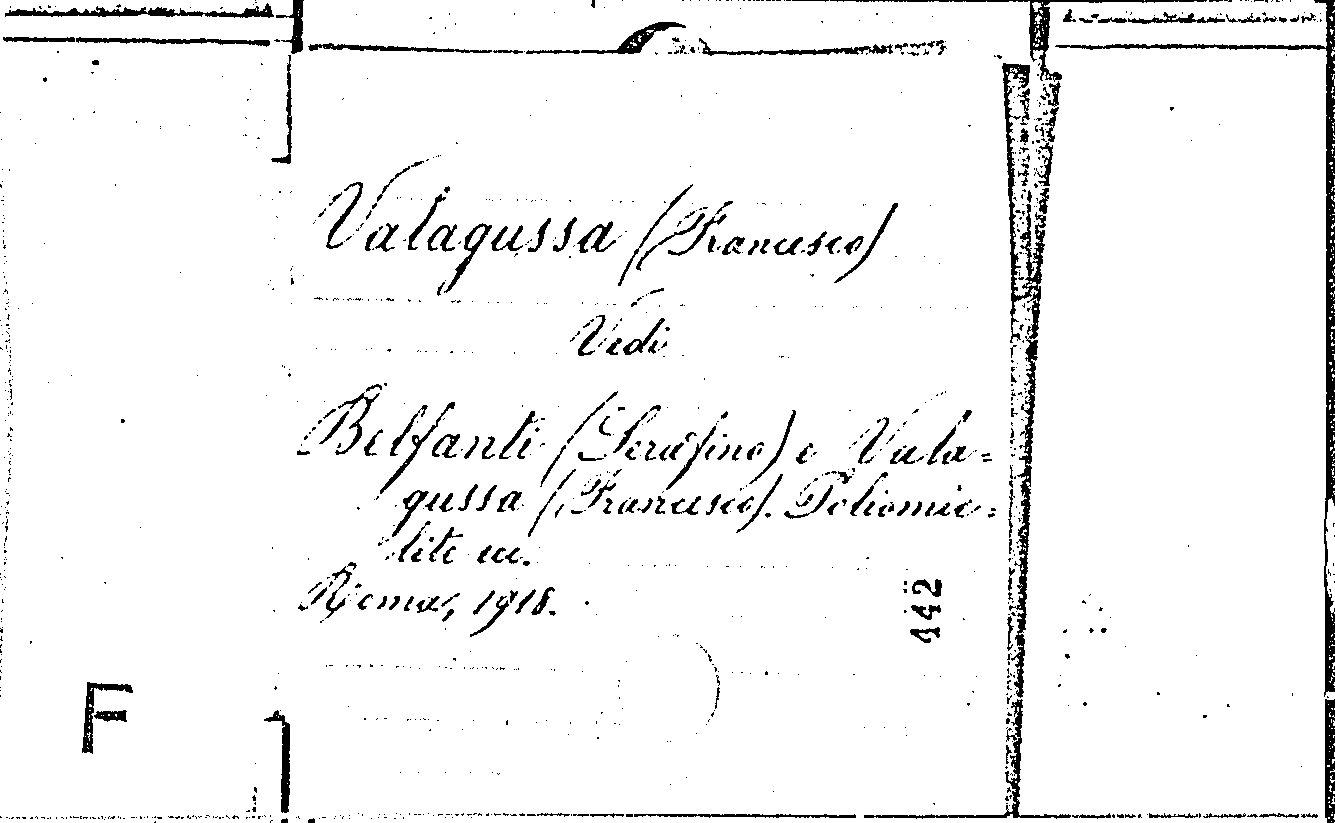 Valagussa (Francesco)
Vedi
Belfanti (Serafino) e Vala=
gussa (Francesco). Poliomie=
lite ecc.
Roma, 1918.
442
F